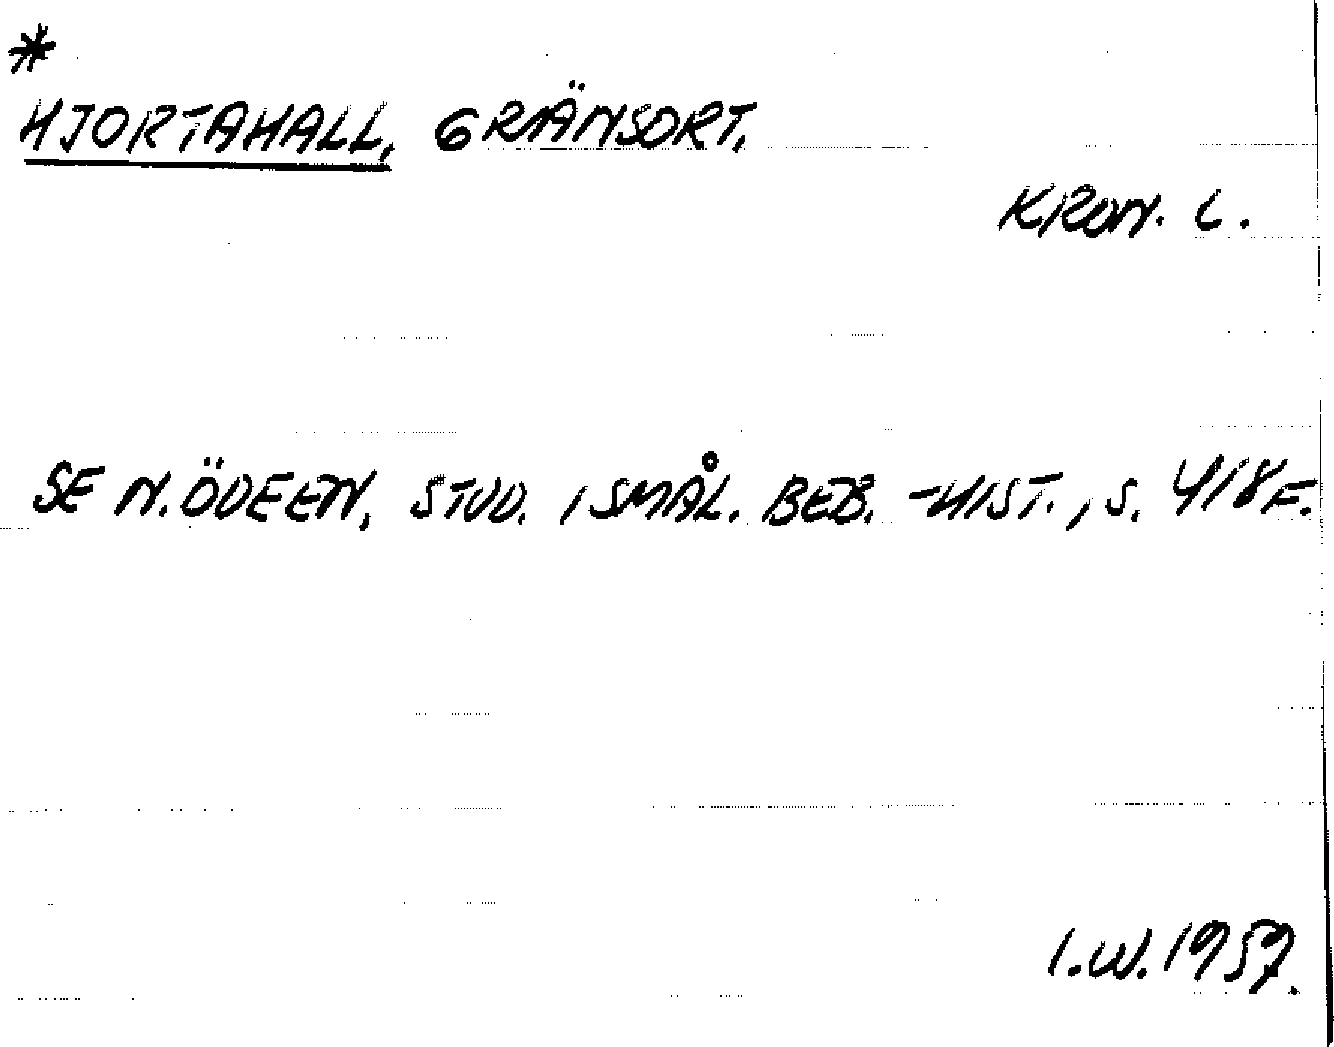 *
HJORTAHALL, GRÄNSORT.
KRON. L.
SE N. ÖDEEN, STUD. I SMÅL. BEB. -HIST., S. 418 F.
I.W. 1959.